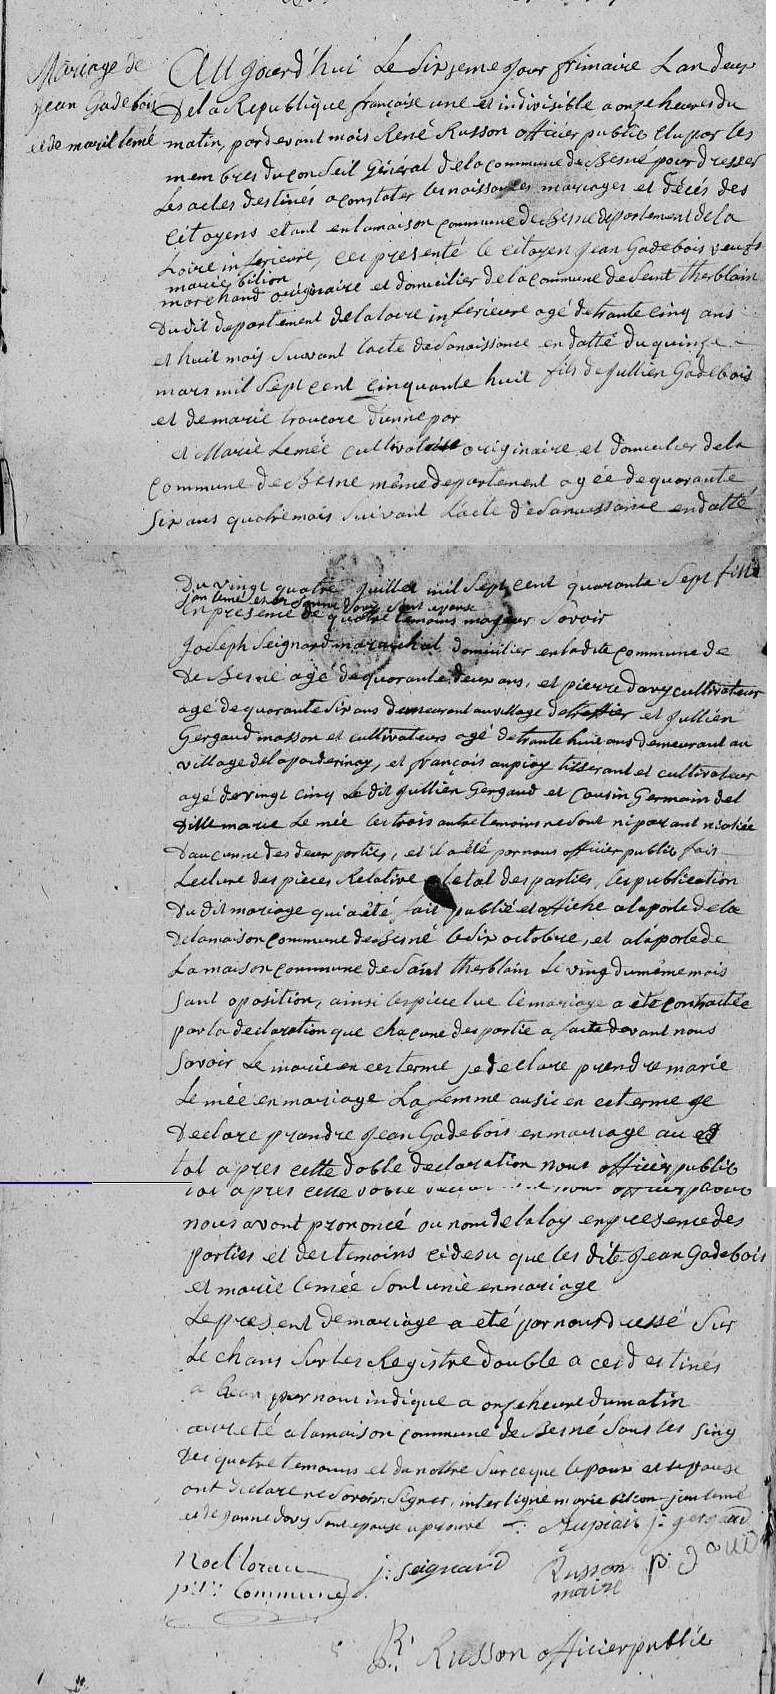 Mariage de
jean Gadebois
et de marie lemé
Aujourd'hui Le Sixieme jour frimaire Lan deux
De la Republique française une et indivisible a onze heures du
matin, pardevant mois René Russon officier public elu par les
membres du conseil Général de la commune de Besné pour dresser
Les actes destinés a constater les naissances mariages et décés des
Citoyens etant en la maison commune de Besne departement de la
Loire inferieure, ces presenté le citoyen jean Gadebois veufs
marie bilion
marchand originaire et domicilier de la commune de Seint therblain
Du dit departement de la loire inferieure agé de trante cinq ans
et huit mois Suivant lacte de Sanaissance en datté du quinze
mars mil Sept cent cinquante huit fils de jullien Gadebois
et de marie dunne par
et Marie Lemée cultivatrise originaire et domicilier de la
commune de Besne même departement agée de quarante
Six ans quatre mois Suivant Lacte de Sanaissance en datté
Du vingt quatre juillet mil Sept cent quarante Sept fille
jan lemé et de janne Davy Sont epouse
En presence de quatre temoins majeur Savoir
Joseph Seignard marechal domicilier en la dite commune de
De Besné agé de quarante deux ans, et pierre davy cultivateur
agé de quarante Six ans demeurant au village de et jullien
Gergaud masson et cultivateurs agé de trante huit ans demeurant au
village de la, et françois aupiay tisserant et cultivateur
agé de vingt cinq Le dit jullien Gergaud et Cousin Germain del
Ditte marie Le mée les trois autre temoins ne Sont ni parant ni aliée
Daucunne des deux parties, et il a été par nous officier public fais
Lecture des pieces Relative a letat des parties, les publication
Du dit mariage qui a été fait publié et affiché a la porte de la
De la maison commune de Besné le Six octobre, et a la porte de
La maison commune de Saint therblain Le ving du même mois
Sant oposition, ainsi les piece lue le mariage a été contractée
par la declaration que chacune des partie a faite devant nous
Savoir Le marie en ces terme je declare prendre marie
Le mée en mariage La femme ausi en ces terme je
Declare prandre jean Gadebois en mariage au
tot apres cette doble declaration nous officier public
tot apres cette doble declaration nous officier public
nous avont prononcé au nom de la loy en presence des
parties et des temoins cidesu que les dite jean Gadebois
et marie lemée Sont unie en mariage
Le present de mariage a eté par nous dressé Sur
Le chans Sur les Registre double a ces destinés
a par nous indique a onze heure du matin
arreté a la maison commune de Besné Sous les Sing
Des quatre temoins et du nottre Sur ce que lepoux et lepouse
ont declare ne Savoir Signer, interligne marie bilion jan lemé
et de janne davy Sont epouse aprouvé Aupiais j: gergaud
Noel moreau j: Seignard Russon p: Davi
pr: Commune maire
R: Russon officier public